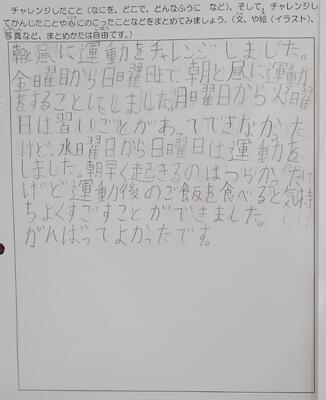 チャレンジしたこと(なにを、どこで、どんなふうに など)、そして、チャレンジし
てかんじたことや心にのこったことなどをまとめてみましょう。(文、や絵(イラスト)、
写真など、まとめかたは自由です。)
朝と昼に運動をチャレンジしました。
金曜日から日曜日まで、朝と昼に運動
をすることにしました。月曜日から火曜
日は習いごとがあってできなかった
けど、水曜日から日曜日は運動を
しました。朝早く起きるのはつらかったけ
けど運動後のご飯を食べると気持
ちよくすごすことができました。
がんばってよかったです。